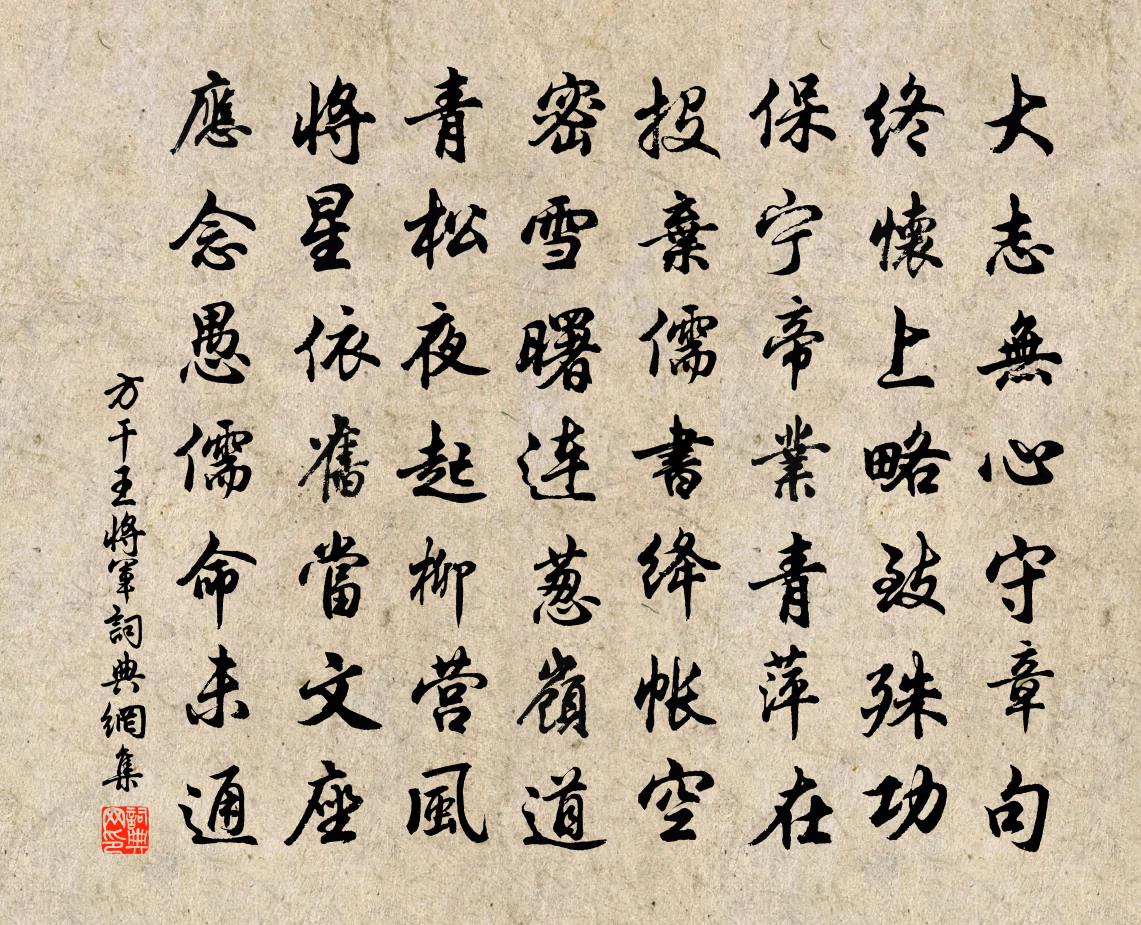 大志無心守章句
終懷上略致殊功
保宁帝業青萍在
投棄儒書绛帐空
密雪曙连葱嶺道
青松夜起柳营風
將星依舊當文座
應念愚儒命未通
方干王將軍詞典網集
詞典网印